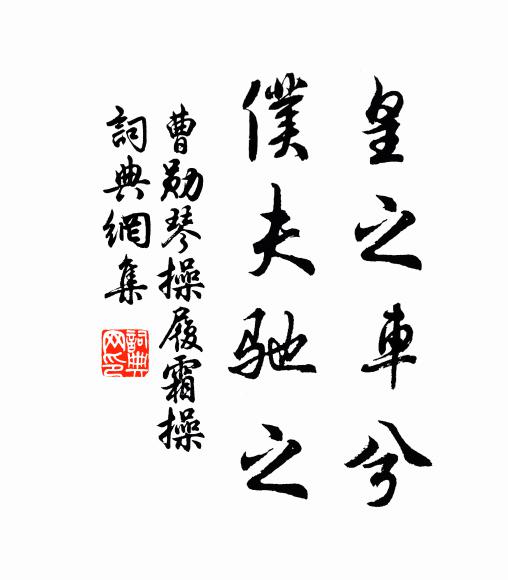 皇之車兮
僕夫馳之
曹勛琴操履霜操
詞典網集
詞典
网印